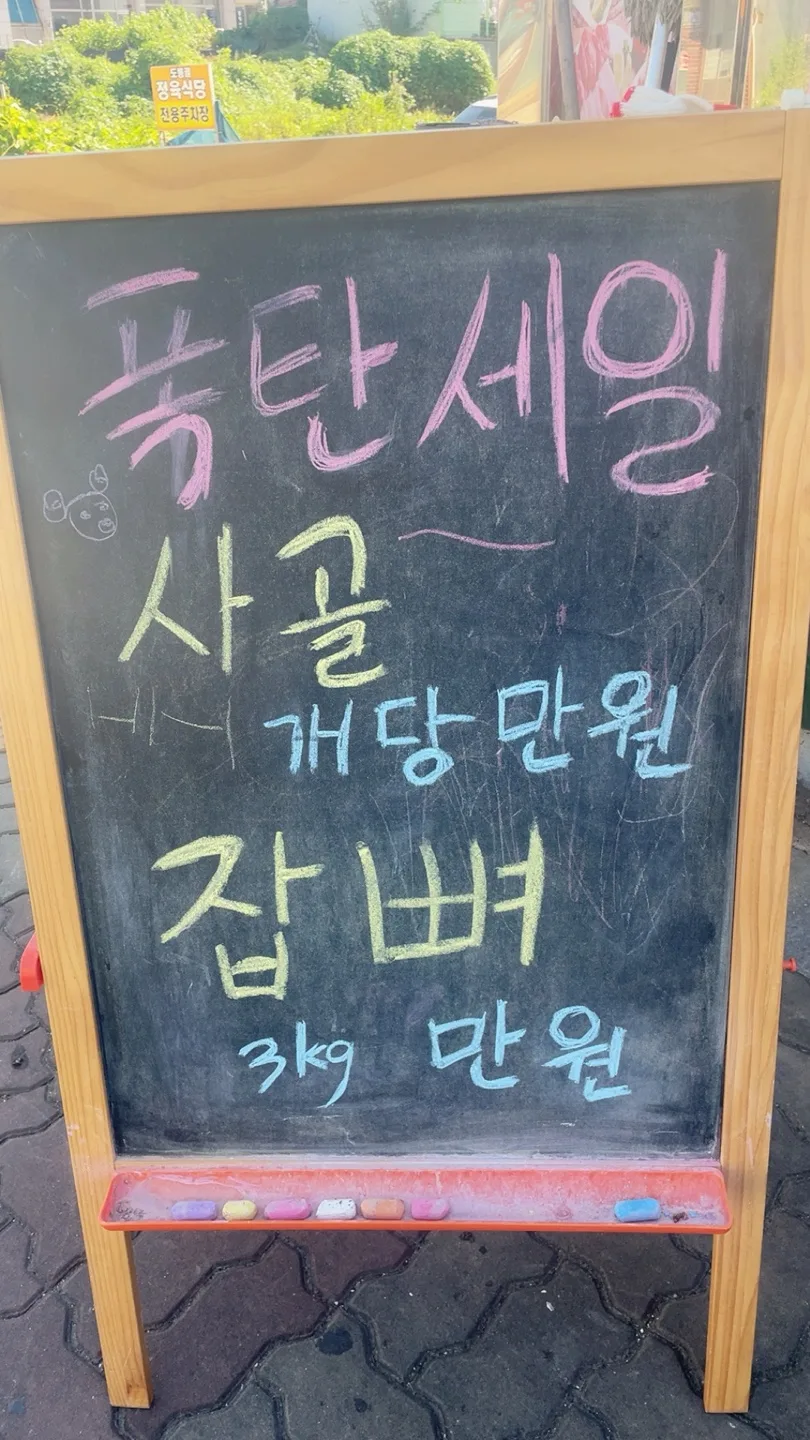 정육식당
전용주차장
폭탄세일
사골
개당 만원
잡뼈
3kg 만원